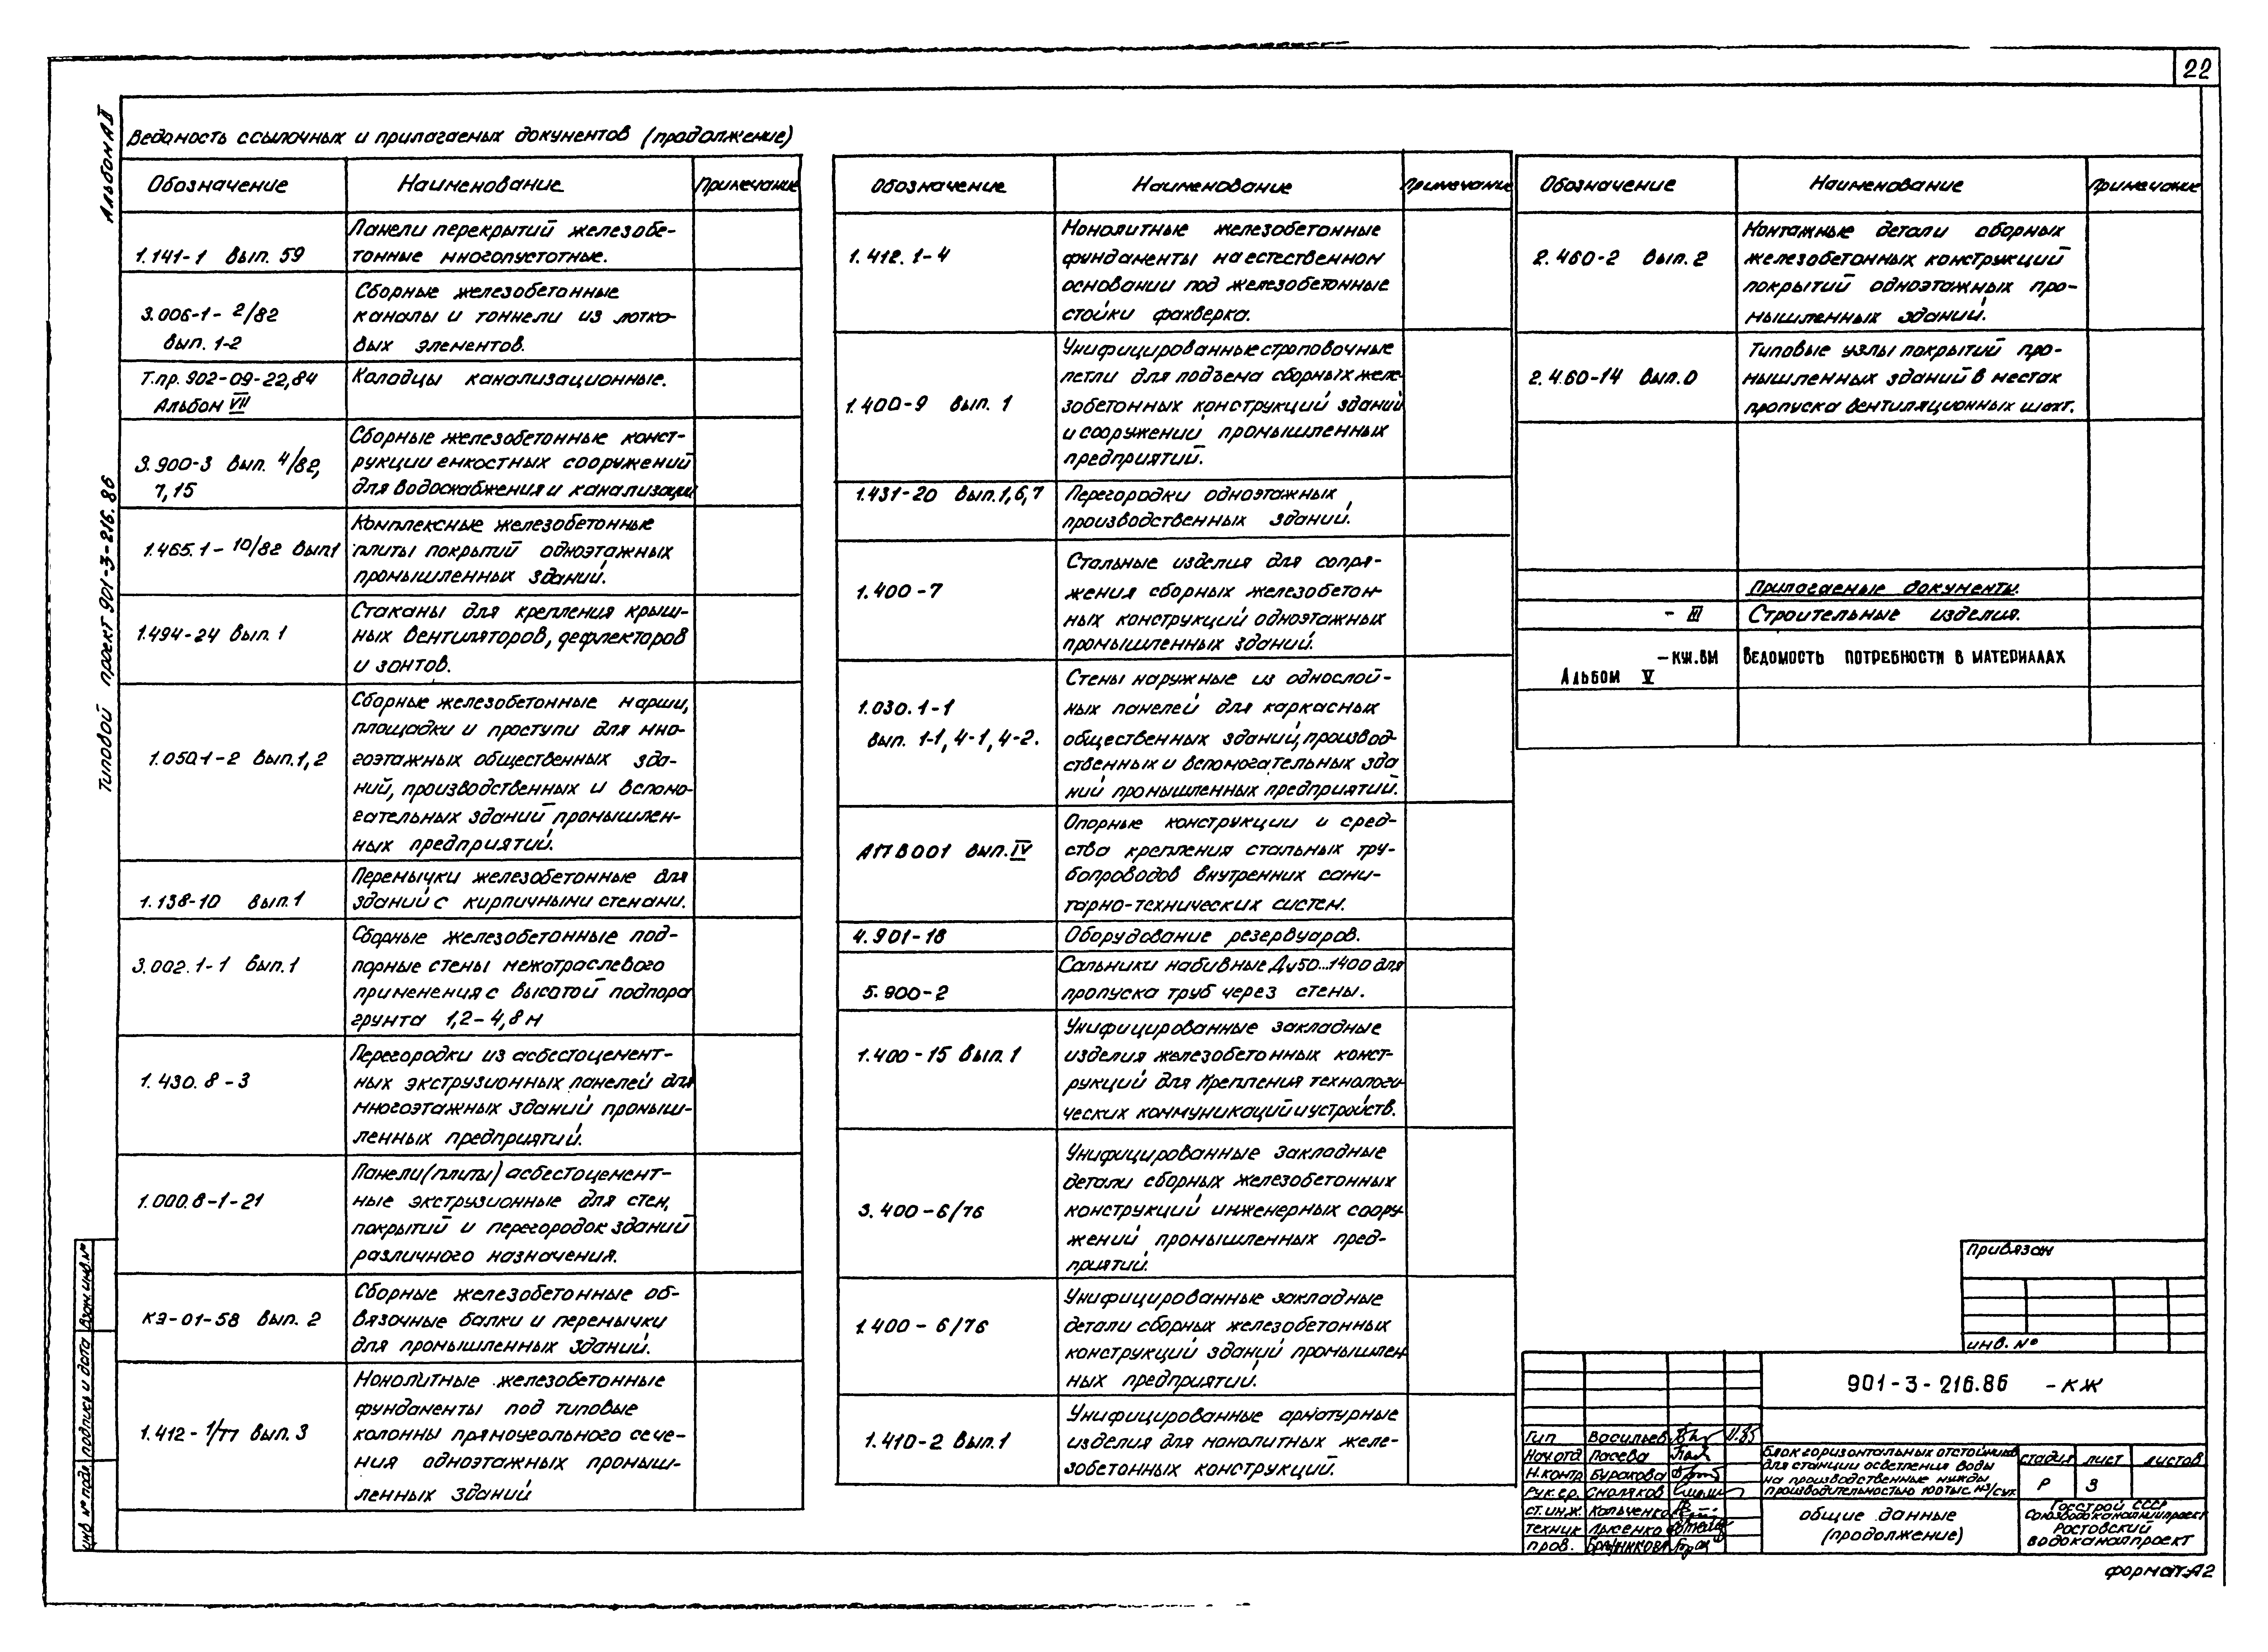 22
Альбом II
Типовой проект 901-3-216.86
Ведомость ссылочных и прилагаемых документов (продолжение)
Обозначение Наименование Примечание
1.141-1 вып. 59
Панели перекрытий железобе-
тонные многопустотные.
3.006-1-2/82
вып. 1-2
Сборные железобетонные
каналы и тоннели из лотко-
вых элементов.
Т.пр. 902-09-22,84
Альбом VII
Колодцы канализационные.
3.900-3 вып. 4/82,
7, 15
Сборные железобетонные конст-
рукции емкостных сооружений
для водоснабжения и канализации
1.465.1-10/82 вып1
Комплексные железобетонные
плиты покрытий одноэтажных
промышленных зданий.
1.494-24 вып. 1
Стаканы для крепления крыш-
ных вентиляторов, дефлекторов
и зонтов.
1.050.1-2 вып.1,2
Сборные железобетонные марши,
площадки и проступи для мно-
гоэтажных общественных зда-
ний, производственных и вспомо-
гательных зданий промышлен-
ных предприятий.
1.138-10 вып.1
Перемычки железобетонные для
зданий с кирпичными стенами.
3.002.1-1 вып.1
Сборные железобетонные под-
порные стены межотраслевого
применения с высотой подпора
грунта 1,2-4,8м
1.430.8-3
Перегородки из асбестоцемент-
ных экструзионных панелей для
многоэтажных зданий промыш-
ленных предприятий.
1.000.8-1-21
Панели(плиты) асбестоцемент-
ные экструзионные для стен,
покрытий и перегородок зданий
различного назначения.
КЭ-01-58 вып. 2
Сборные железобетонные об-
вязочные балки и перемычки
для промышленных зданий.
1.412-1/77 вып. 3
Монолитные железобетонные
фундаменты под типовые
колонны прямоугольного сече-
ния одноэтажных промыш-
ленных зданий
Обозначение Наименование Примечание
1.412.1-4
Монолитные железобетонные
фундаменты на естественном
основании под железобетонные
стойки фахверка.
1.400-9 вып. 1
Унифицированные строповочные
петли для подъема сборных желе-
зобетонных конструкций зданий
и сооружений промышленных
предприятий.
1.431-20 вып.1,6,7
Перегородки одноэтажных
производственных зданий.
1.400-7
Стальные изделия для сопря-
жения сборных железобетон-
ных конструкций одноэтажных
промышленных зданий.
1.030.1-1
вып. 1-1, 4-1, 4-2.
Стены наружные из однослой-
ных панелей для каркасных
общественных зданий, производ-
ственных и вспомогательных зда
ний промышленных предприятий.
АПВ001 вып. IV
Опорные конструкции и сред-
ства крепления стальных тру-
бопроводов внутренних сани-
тарно-технических систем.
4.901-18
Оборудование резервуаров.
5.900-2
Сальники набивные Ду50...1400 для
пропуска труб через стены.
1.400-15 вып.1
Унифицированные закладные
изделия железобетонных конст-
рукций для крепления технологи-
ческих коммуникаций и устройств.
3.400-6/76
Унифицированные закладные
детали сборных железобетонных
конструкций инженерных соору-
жений промышленных пред-
приятий.
1.400-6/76
Унифицированные закладные
детали сборных железобетонных
конструкций зданий промышлен
ных предприятий.
1.410-2 вып.1
Унифицированные арматурные
изделия для монолитных желе-
зобетонных конструкций.
Обозначение Наименование Примечание
2.460-2 вып.2
Монтажные детали сборных
железобетонных конструкций
покрытий одноэтажных про-
мышленных зданий.
2.460-14 вып.0
Типовые узлы покрытий про-
мышленных зданий в местах
пропуска вентиляционных шахт.
Прилагаемые документы.
- III Строительные изделия.
-КЖ.ВМ
Альбом V
Ведомость потребности в материалах
Привязан
Инв. №
901-3-216.86 -КЖ
Гип Васильев 11.85
Нач.отд Пасева
Н.контр Буракова
Рук.гр. Смоляков
ст.инж. Кольченко
техник Лысенко
пров. Бражникова
Блок горизонтальных отстойников
для станции осветления воды
на производственные нужды
производительностью 100 тыс. м3/сут.
стадия лист листов
Р 3
общие данные
(продолжение)
Госстрой СССР
Союзводоканалниипроект
Ростовский
Водоканалпроект
формат А2
инв № подл. подпись и дата взам. инв. №